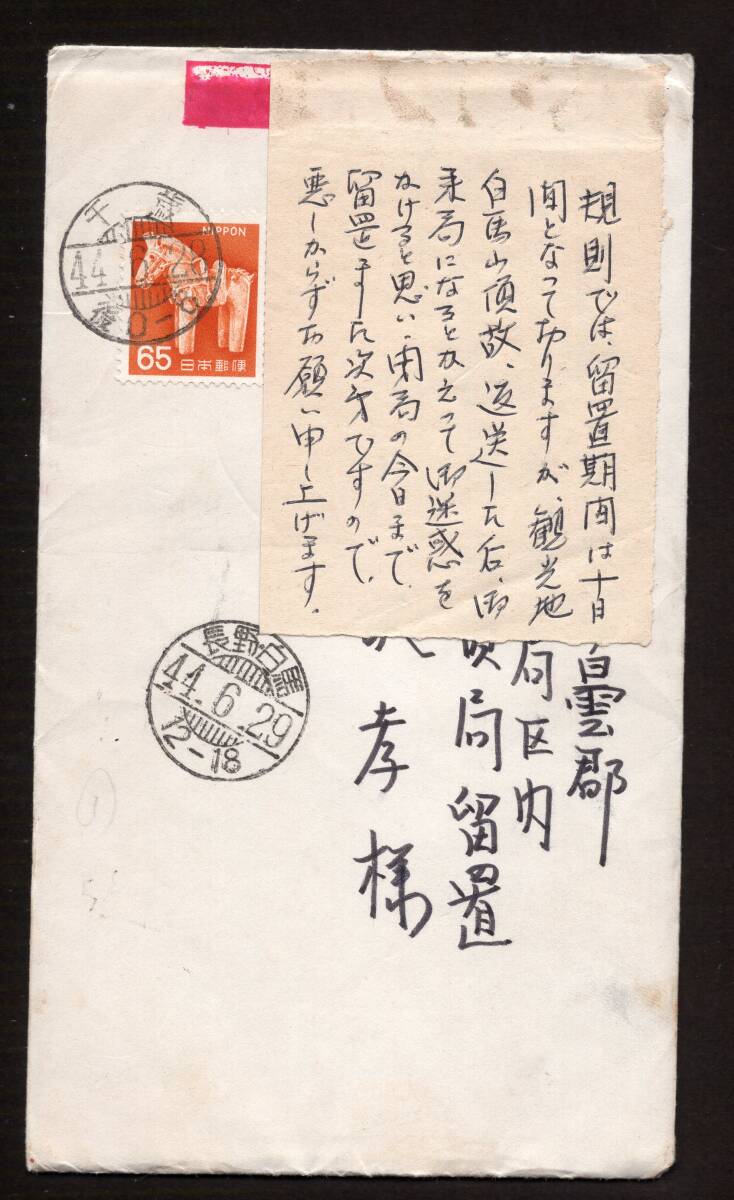 規則では、留置期間は十日
間となっておりますが、観光地
白馬山頂故、返送した后、御
来局になるとかえって御迷惑を
かけると思い、開局の今日まで、
留置ました次才ですので、
悪しからずお願い申し上げます。
曇郡
局区内
局留置
孝様
千歳
44.6.28
後0-6
NIPPON
65 日本郵便
長野・白馬
44.6.29
12-18